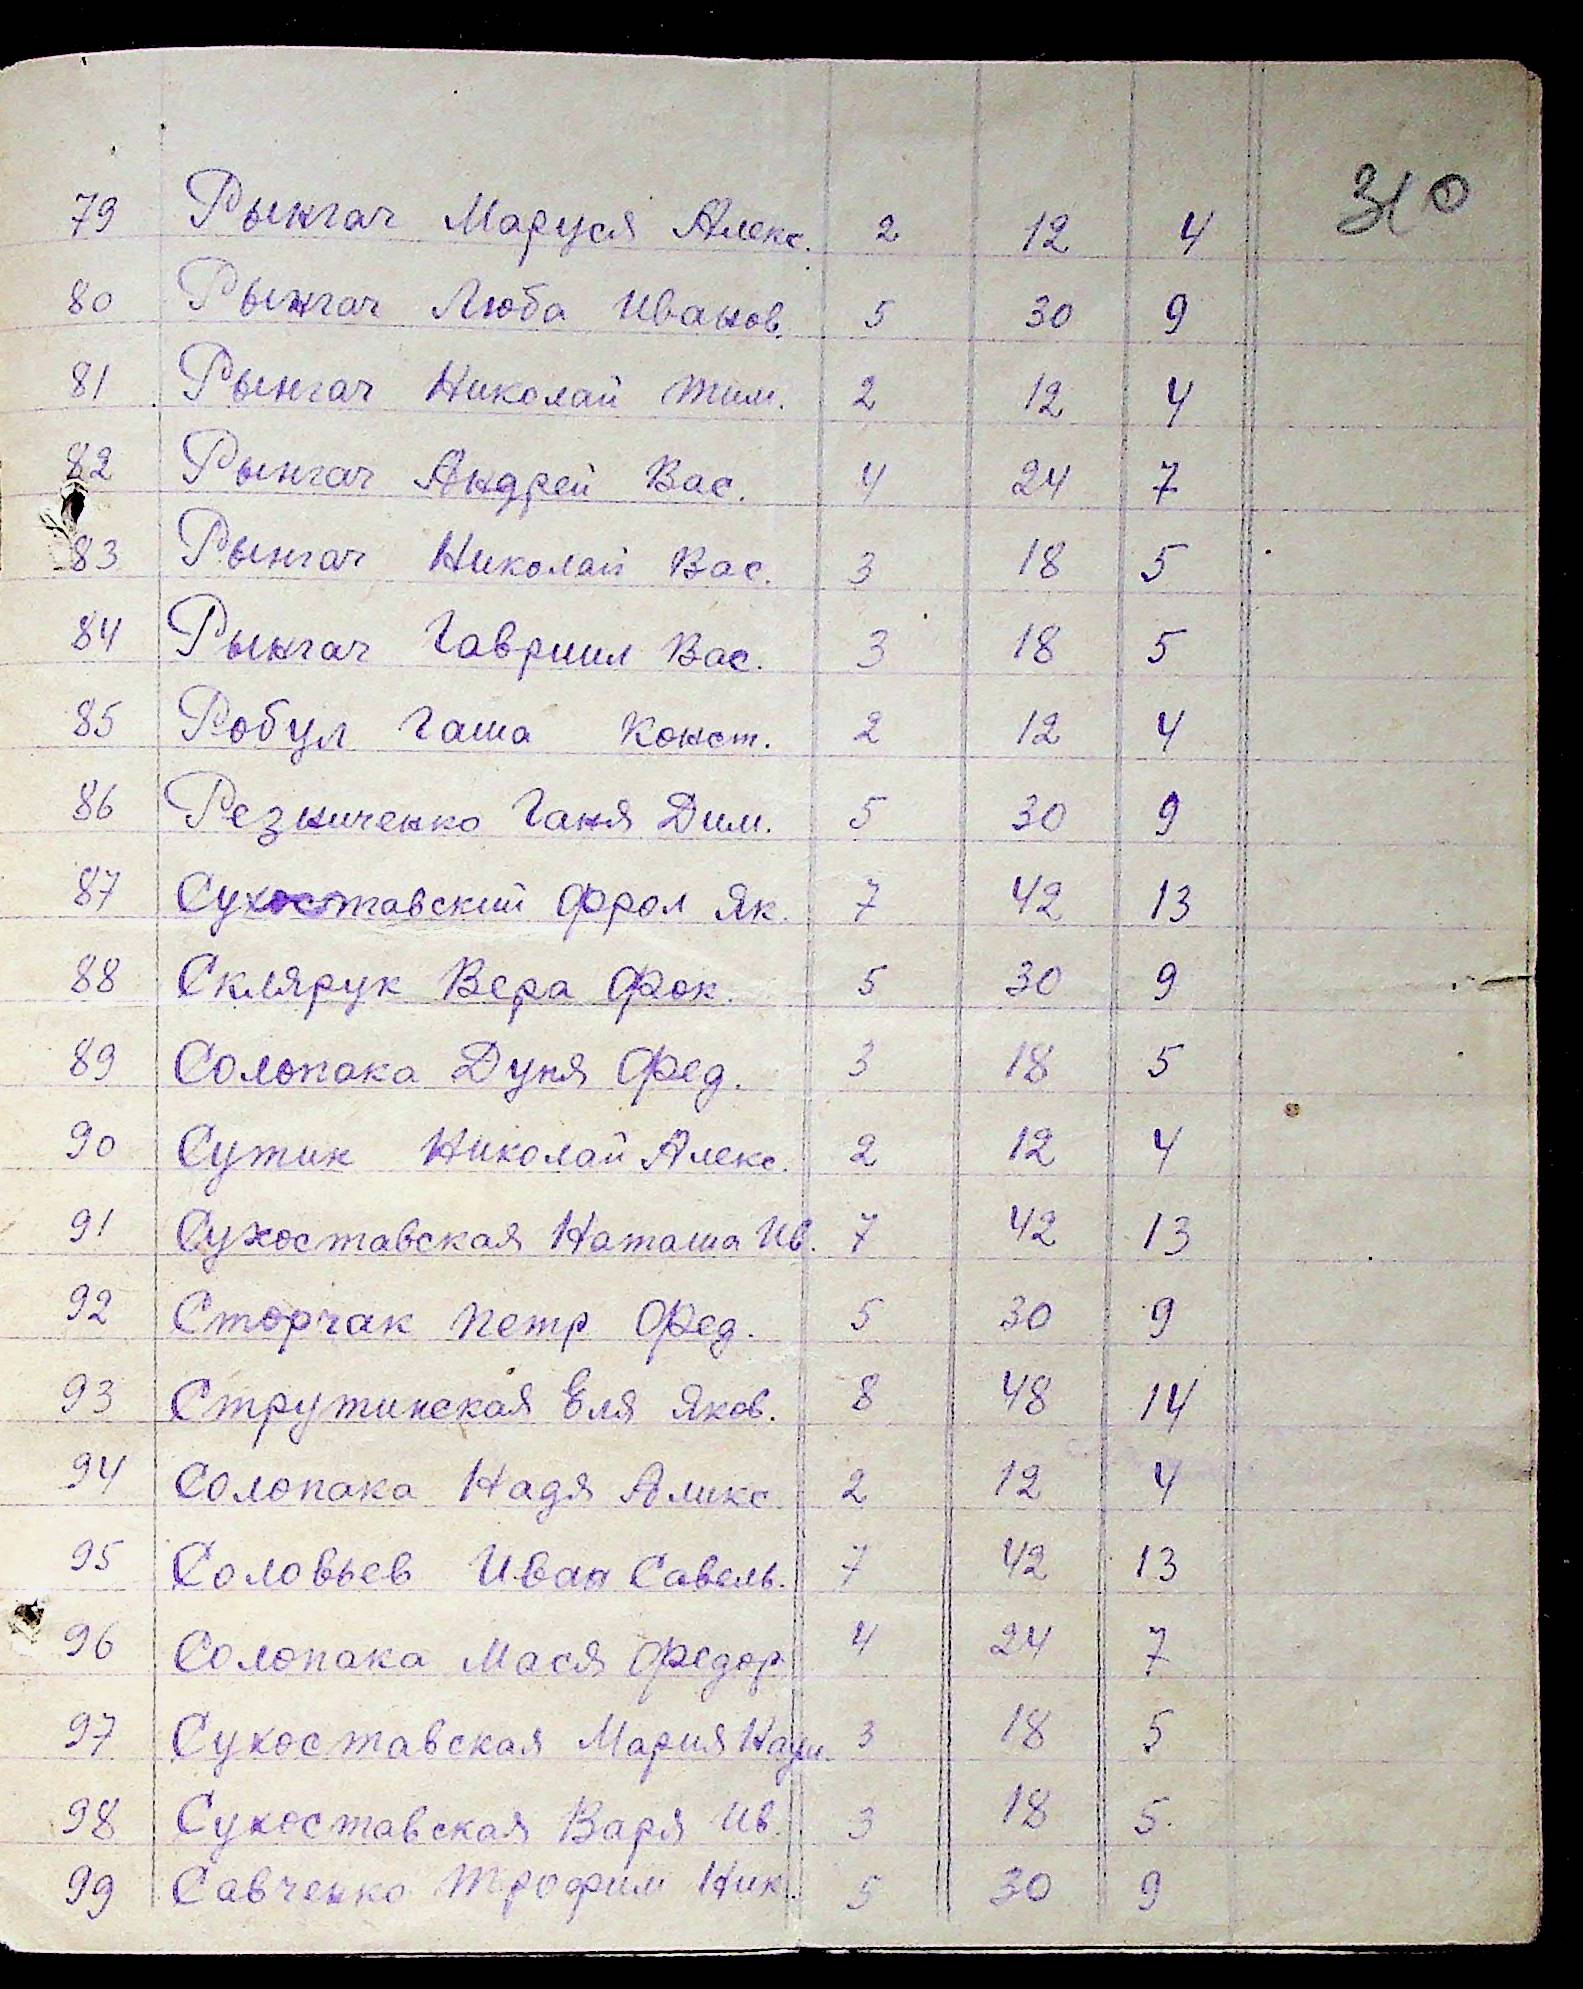 310
79 Рынгач Маруся Алекс. 2 12 4
80 Рынгач Люба Иванов. 5 30 9
81 Рынгач Николай Тим. 2 12 4
82 Рынгач Андрей Вас. 4 24 7
83 Рынгач Николай Вас. 3 18 5
84 Рынгач Гавриил Вас. 3 18 5
85 Робул Гаша Конст. 2 12 4
86 Резниченко Ганя Дим. 5 30 9
87 Сухоставский Фрол Як. 7 42 13
88 Склярук Вера Фок. 5 30 9
89 Солопака Дуня Фед. 3 18 5
90 Сутин Николай Алекс. 2 12 4
91 Сухоставская Наташа Ив. 7 42 13
92 Сторчак Петр Фед. 5 30 9
93 Струтинская Еля Яков. 8 48 14
94 Солопака Надя Аликс. 2 12 4
95 Соловьев Иван Савель. 7 42 13
96 Солопака Мася Федор. 4 24 7
97 Сухоставская Мария Наум. 3 18 5
98 Сухоставская Варя Ив. 3 18 5.
99 Савченко Трофим Ник. 5 30 9